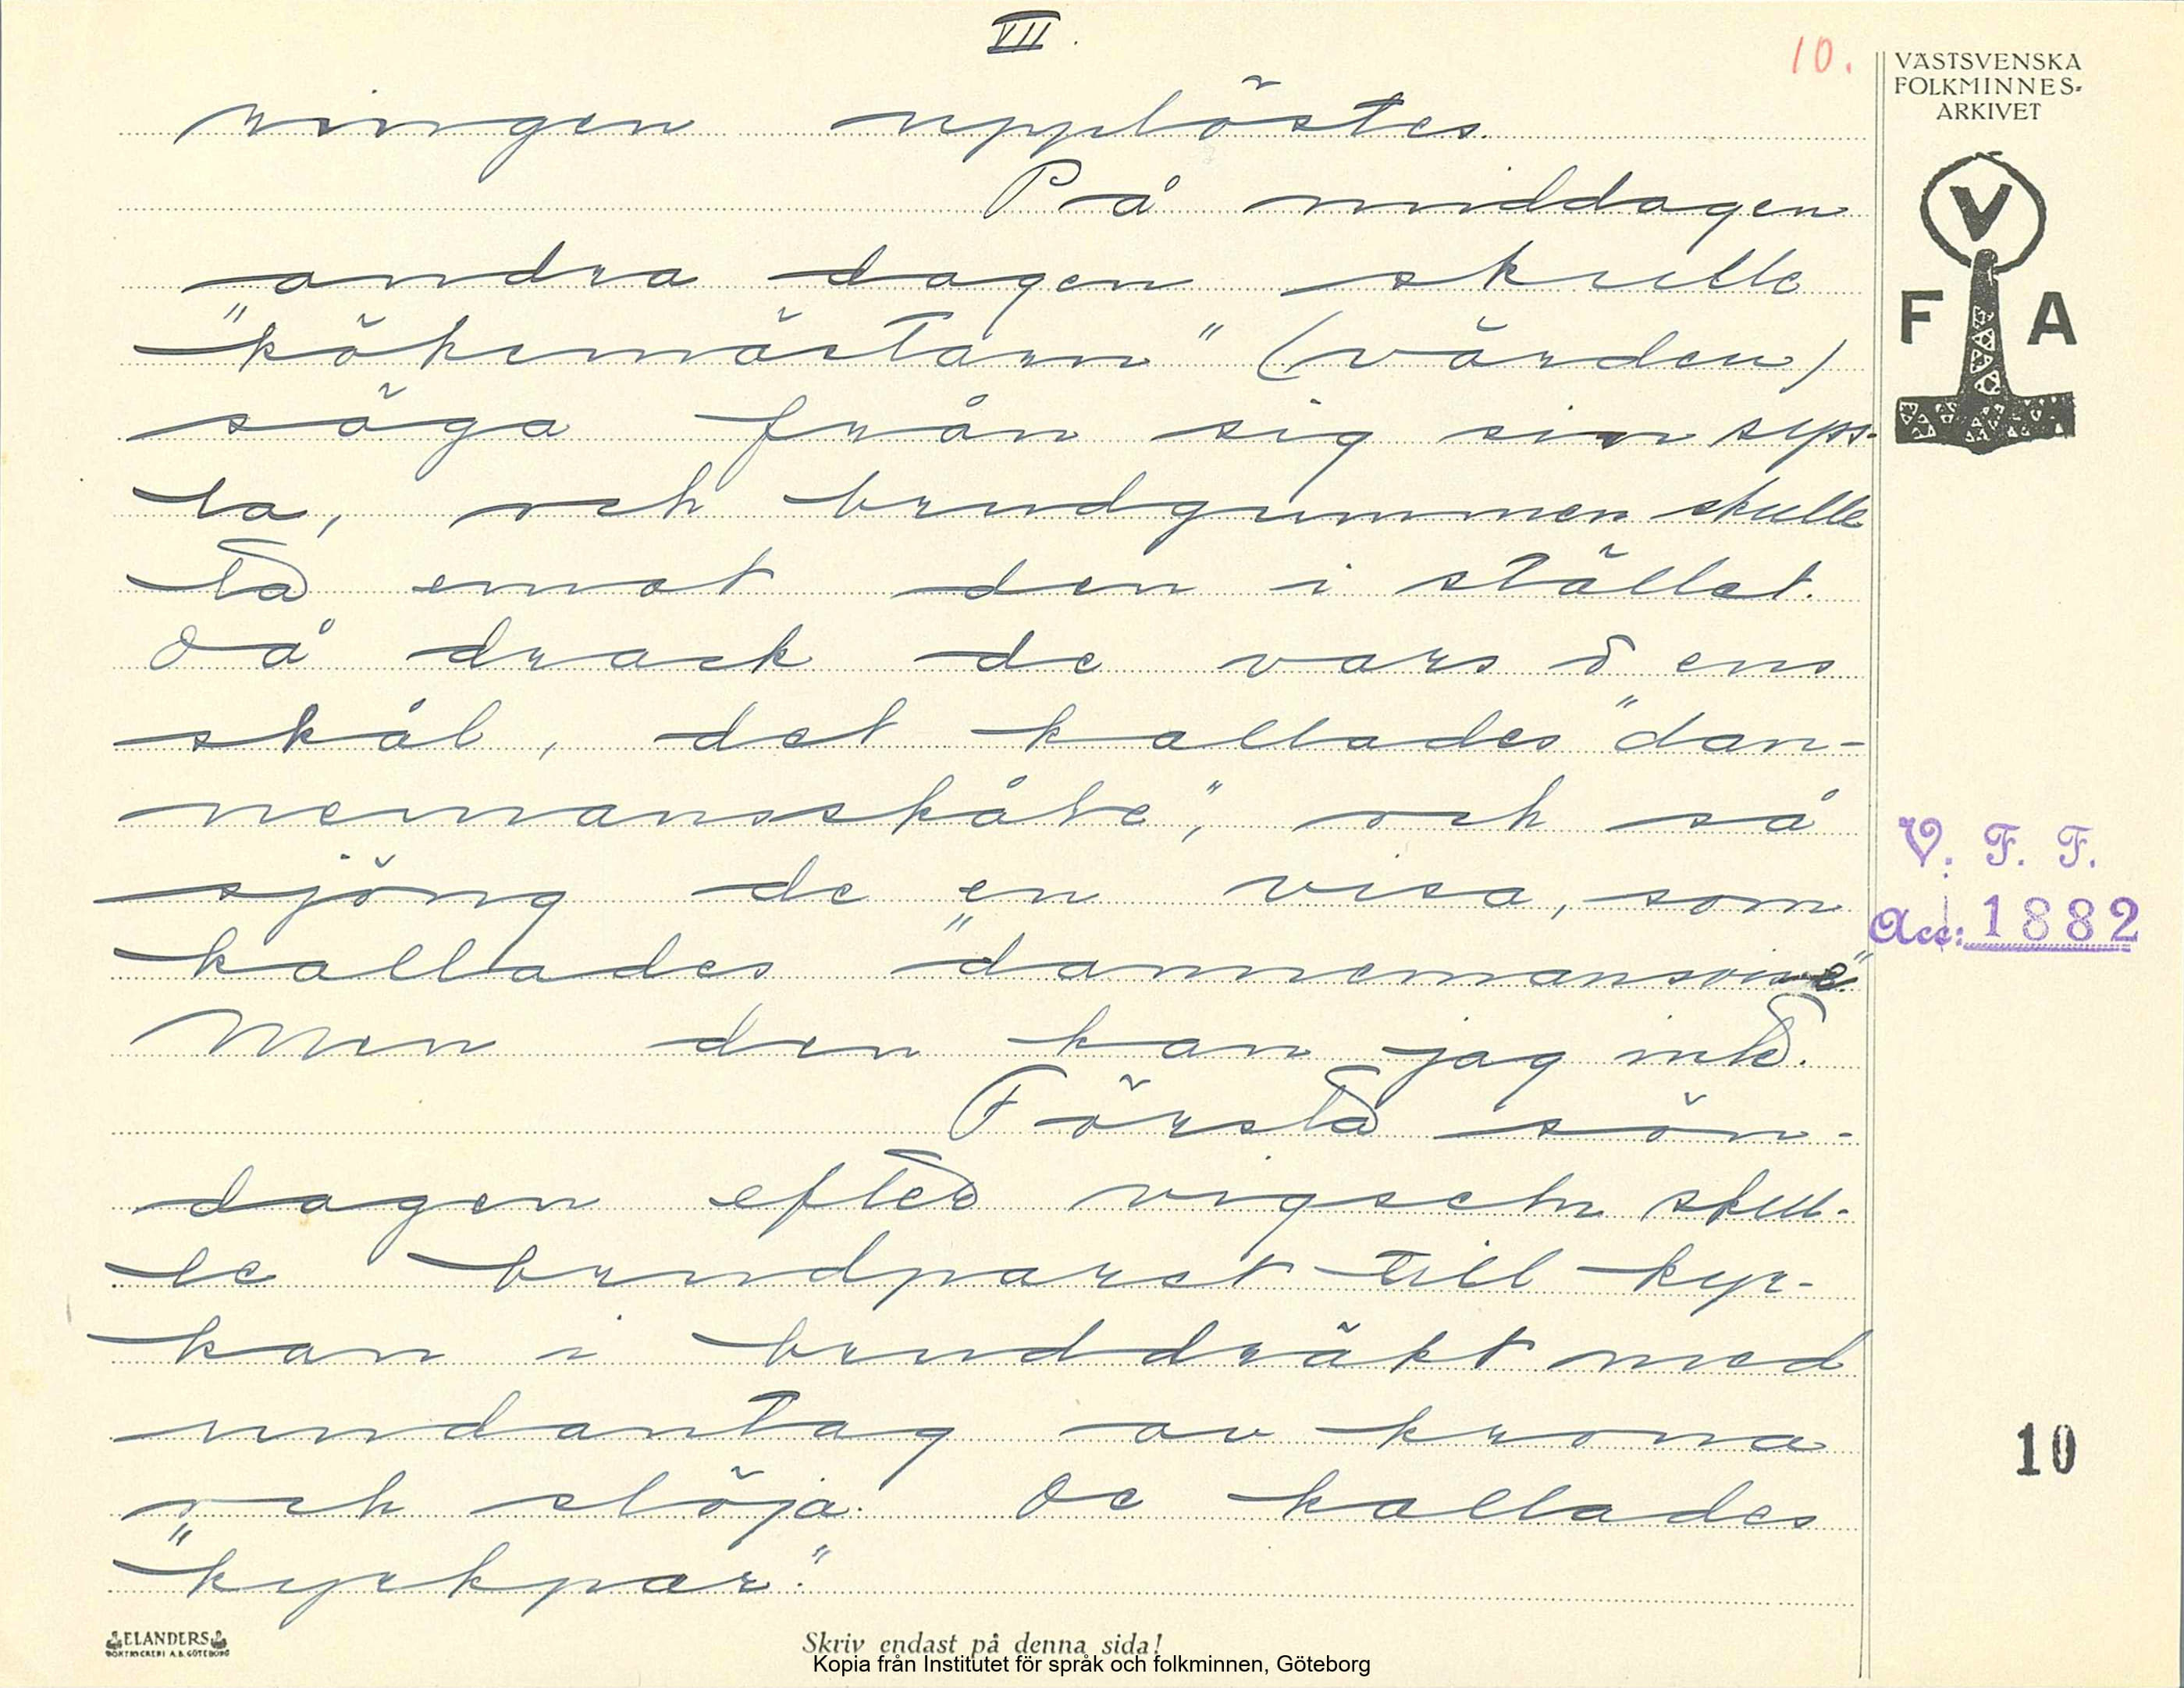 VII.
10.
VÄSTSVENSKA
FOLKMINNES-
ARKIVET
V
F A
ringen upplöstes.
På middagen
andra dagen skulle
"kökemästarn" (värden)
säga från sig sin syss-
la, och brudgummen skulle
ta emot den i stället.
Då drack de varsens
skål, det kallades "dan-
nemansskåle", och så
sjöng de en visa, som
kallades "dannemansvise"
Men den kan jag inte.
Första sön-
dagen efter vigseln skul-
le brudparet till kyr-
kan i bruddräkt med
undantag av krona
och slöja. De kallades
"kyrkpar."
V. F. F.
Acc: 1882
10
ELANDERS
BOKTRYCKERI A.B. GÖTEBORG
Skriv endast på denna sida!
Kopia från Institutet för språk och folkminnen, Göteborg